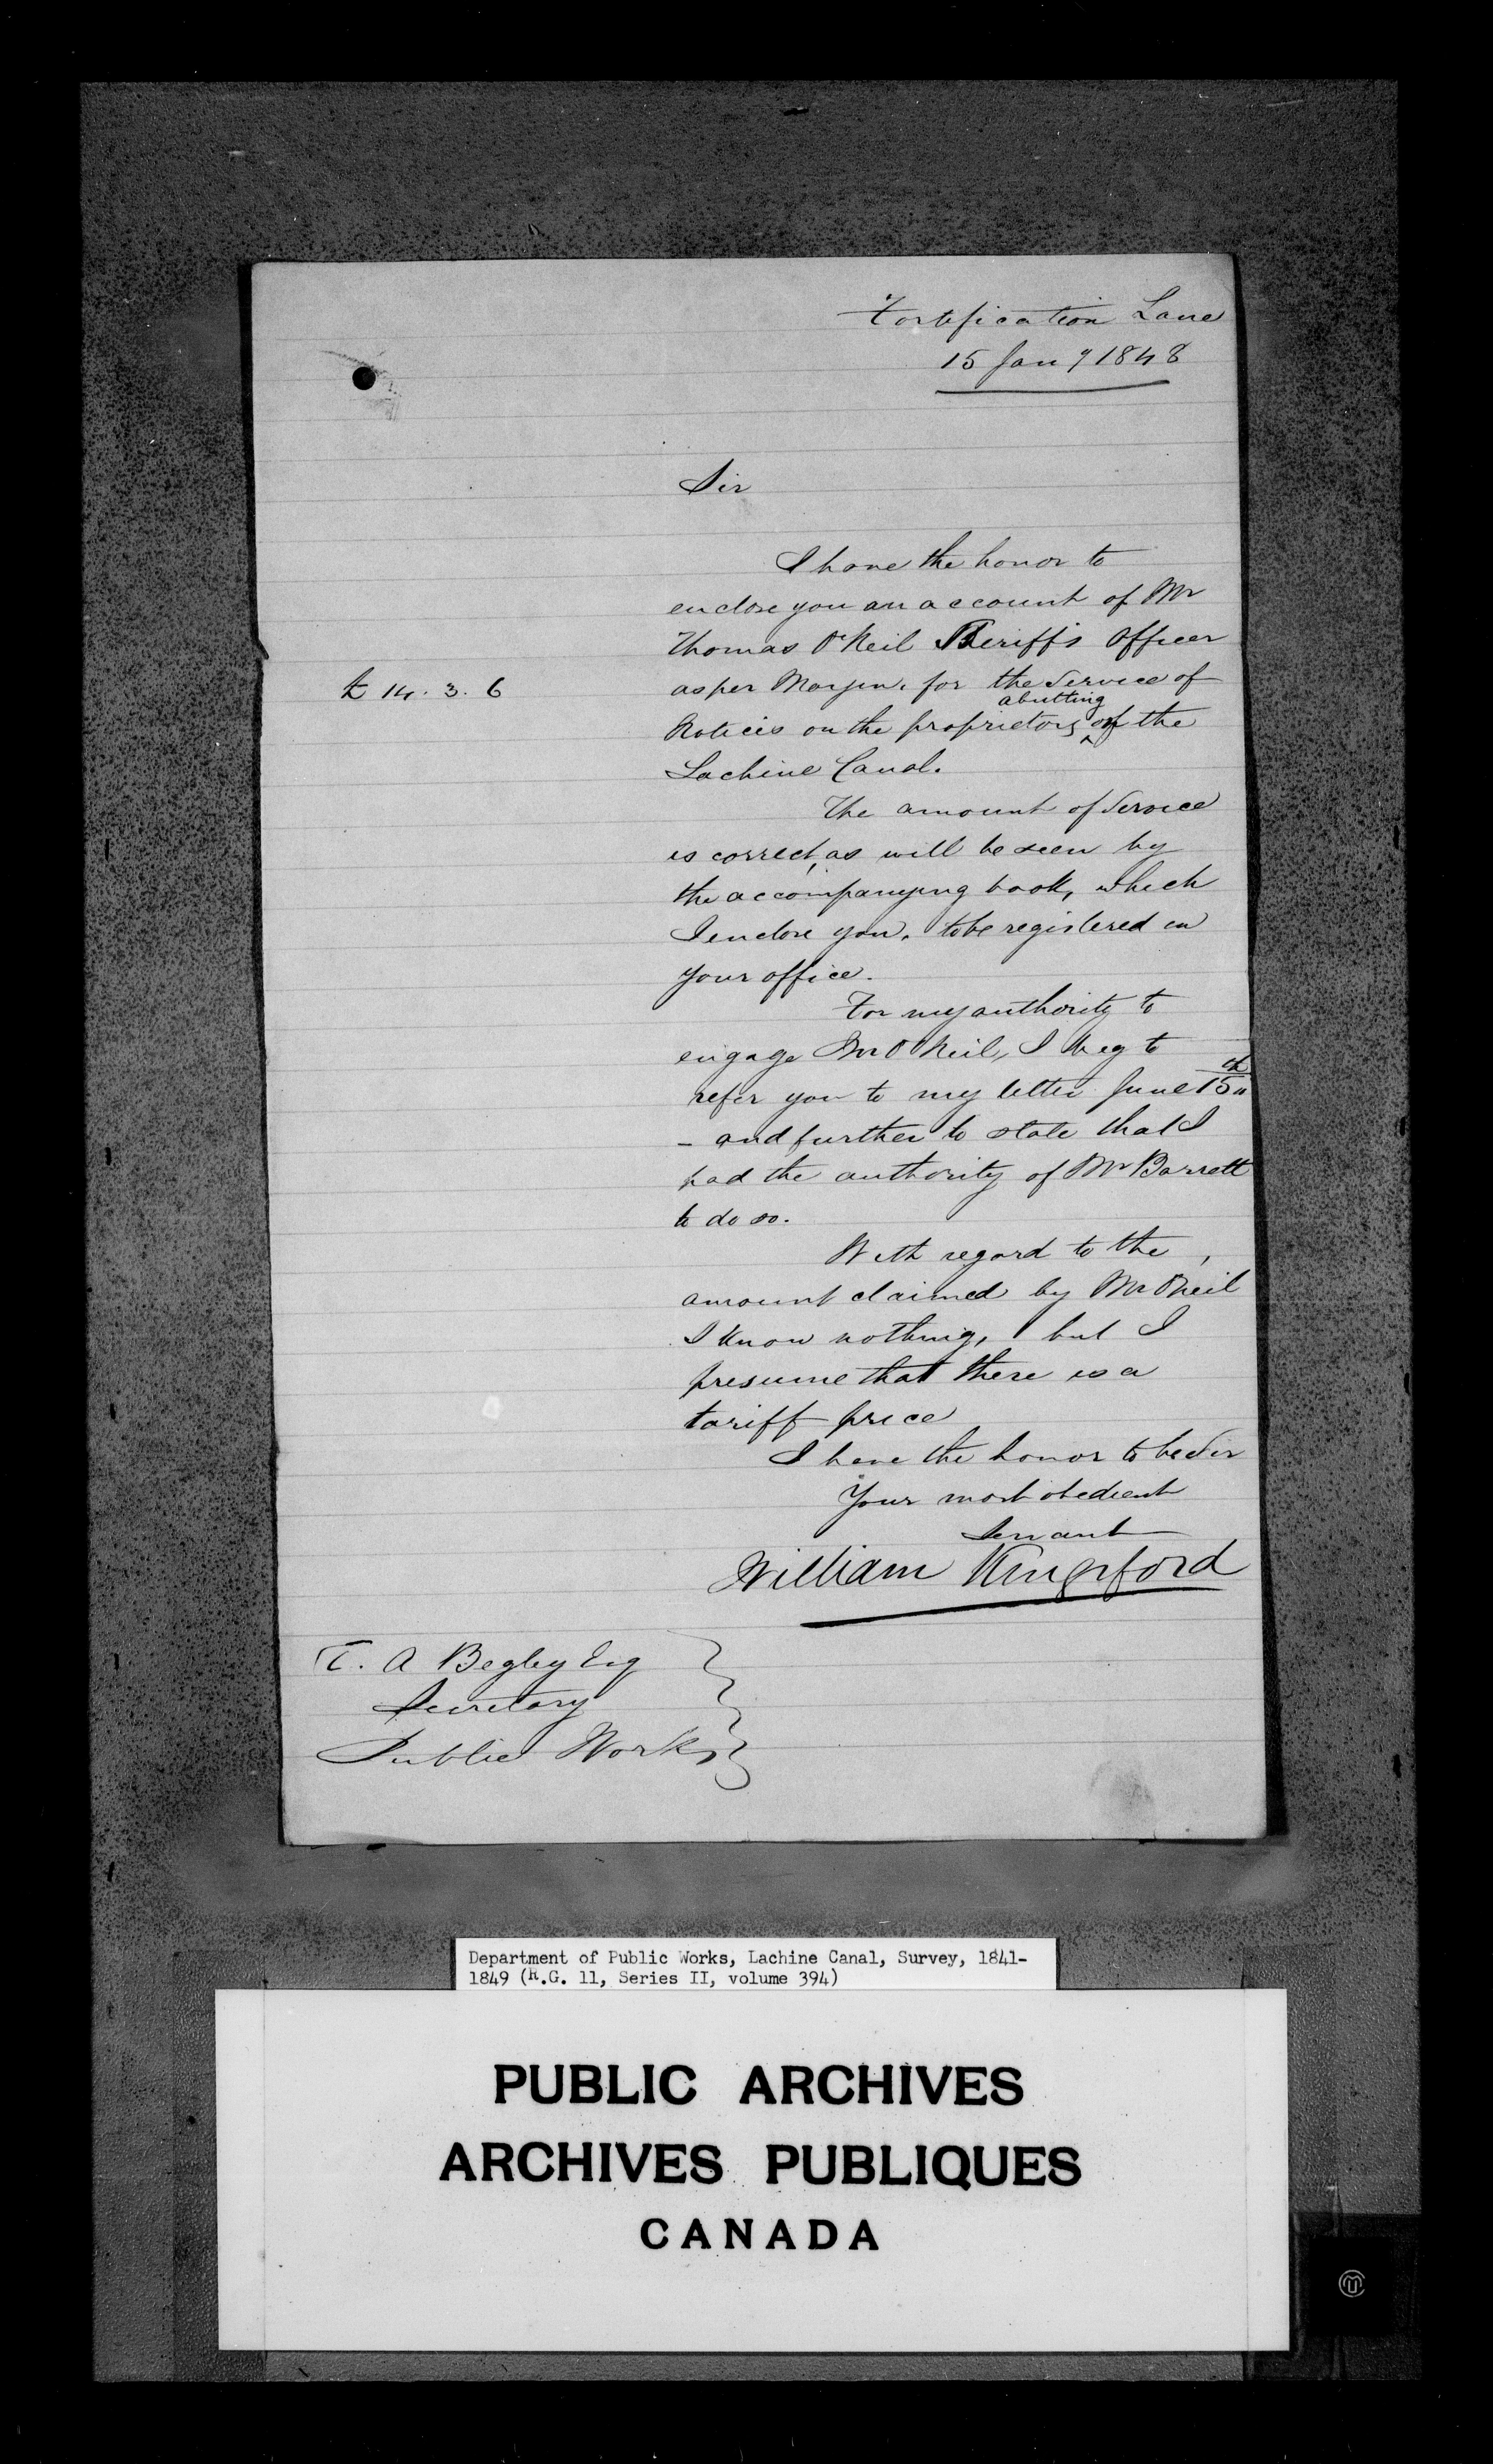 Fortification Lane
15 Jany 1848
Sir
I have the honor to
enclose you an account of Mr
Thomas O'Neil Sheriff's Officer
£ 14. 3. 6
as per Margin, for the Service of
abutting
Notices on the proprietors on the
Lachine Canal.
The amount of Service
is correct, as will be seen by
the accompanying book, which
I enclose you, to be registered in
your office.
For my authority to
engage Mr O'Neil, I beg to
refer you to my letter June 15th
- and further to state that I
had the authority of Mr Barrett
to do so.
With regard to the
amount claimed by Mr O'Neil
I know nothing, but I
presume that there is a
tariff price
I have the honor to be Sir
Your most obedient
Servant
William Kingsford
T. A Begley Esq
Secretary
Public Works
Department of Public Works, Lachine Canal, Survey, 1841-
1849 (R.G. 11, Series II, volume 394)
PUBLIC ARCHIVES
ARCHIVES PUBLIQUES
CANADA